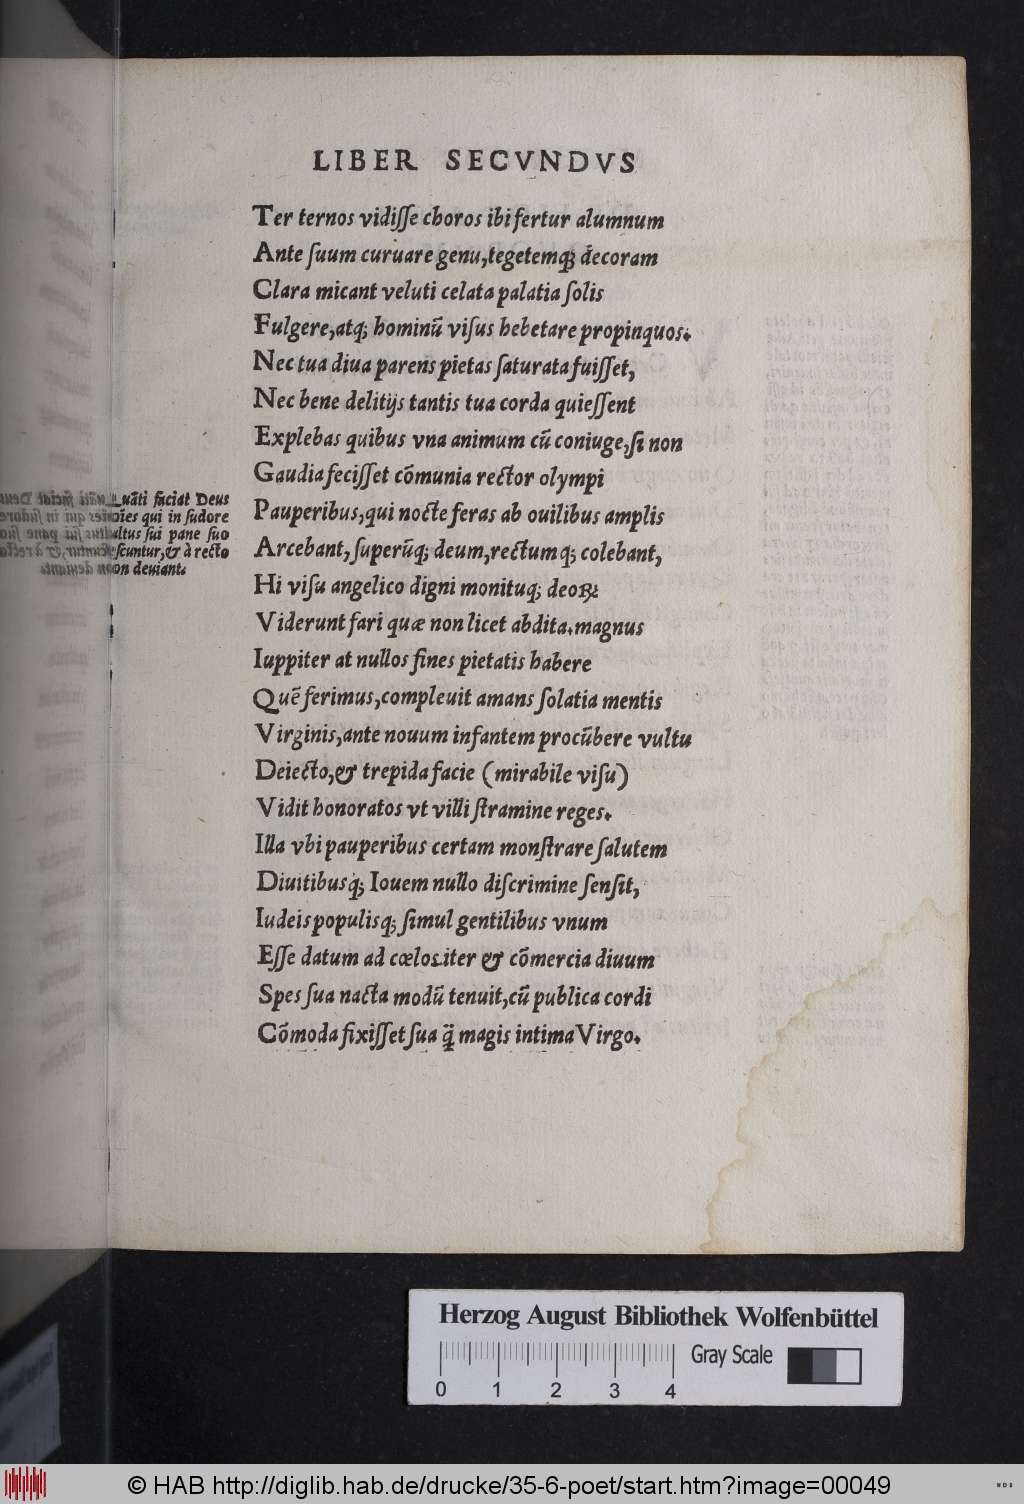 LIBER SECVNDVS
Ter ternos vidiſſe choros ibi fertur alumnum
Ante ſuum curuare genu, tegetemq́; decoram
Clara micant veluti celata palatia ſolis
Fulgere, atq; hominū viſus hebetare propinquos.
Nec tua diua parens pietas ſaturata fuiſſet,
Nec bene delitijs tantis tua corda quieſſent
Explebas quibus vna animum cū coniuge, ſi non
Gaudia feciſſet cōmunia rector olympi
Pauperibus, qui nocte feras ab ouilibus amplis
Arcebant, ſuperūq; deum, rectumq; colebant,
Hi viſu angelico digni monituq; deoꝝ
Viderunt fari quæ non licet abdita. magnus
Iuppiter at nullos fines pietatis habere
Quē ferimus, compleuit amans ſolatia mentis
Virginis, ante nouum infantem procūbere vultu
Deiecto, & trepida facie (mirabile viſu)
Vidit honoratos vt villi ſtramine reges.
Illa vbi pauperibus certam monſtrare ſalutem
Diuitibusq; Iouem nullo diſcrimine ſenſit,
Iudeis populisq; ſimul gentilibus vnum
Eſſe datum ad cœlos iter & cōmercia diuum
Spes ſua nacta modū tenuit, cū publica cordi
Cōmoda fixiſſet ſua q̄ magis intima Virgo.
uāti faciat Deus
oīes qui in ſudore
vultus ſui pane ſuo
veſcuntur, & à recto
non deuiant.
Herzog August Bibliothek Wolfenbüttel
0 1 2 3 4
Gray Scale
© HAB http://diglib.hab.de/drucke/35-6-poet/start.htm?image=00049